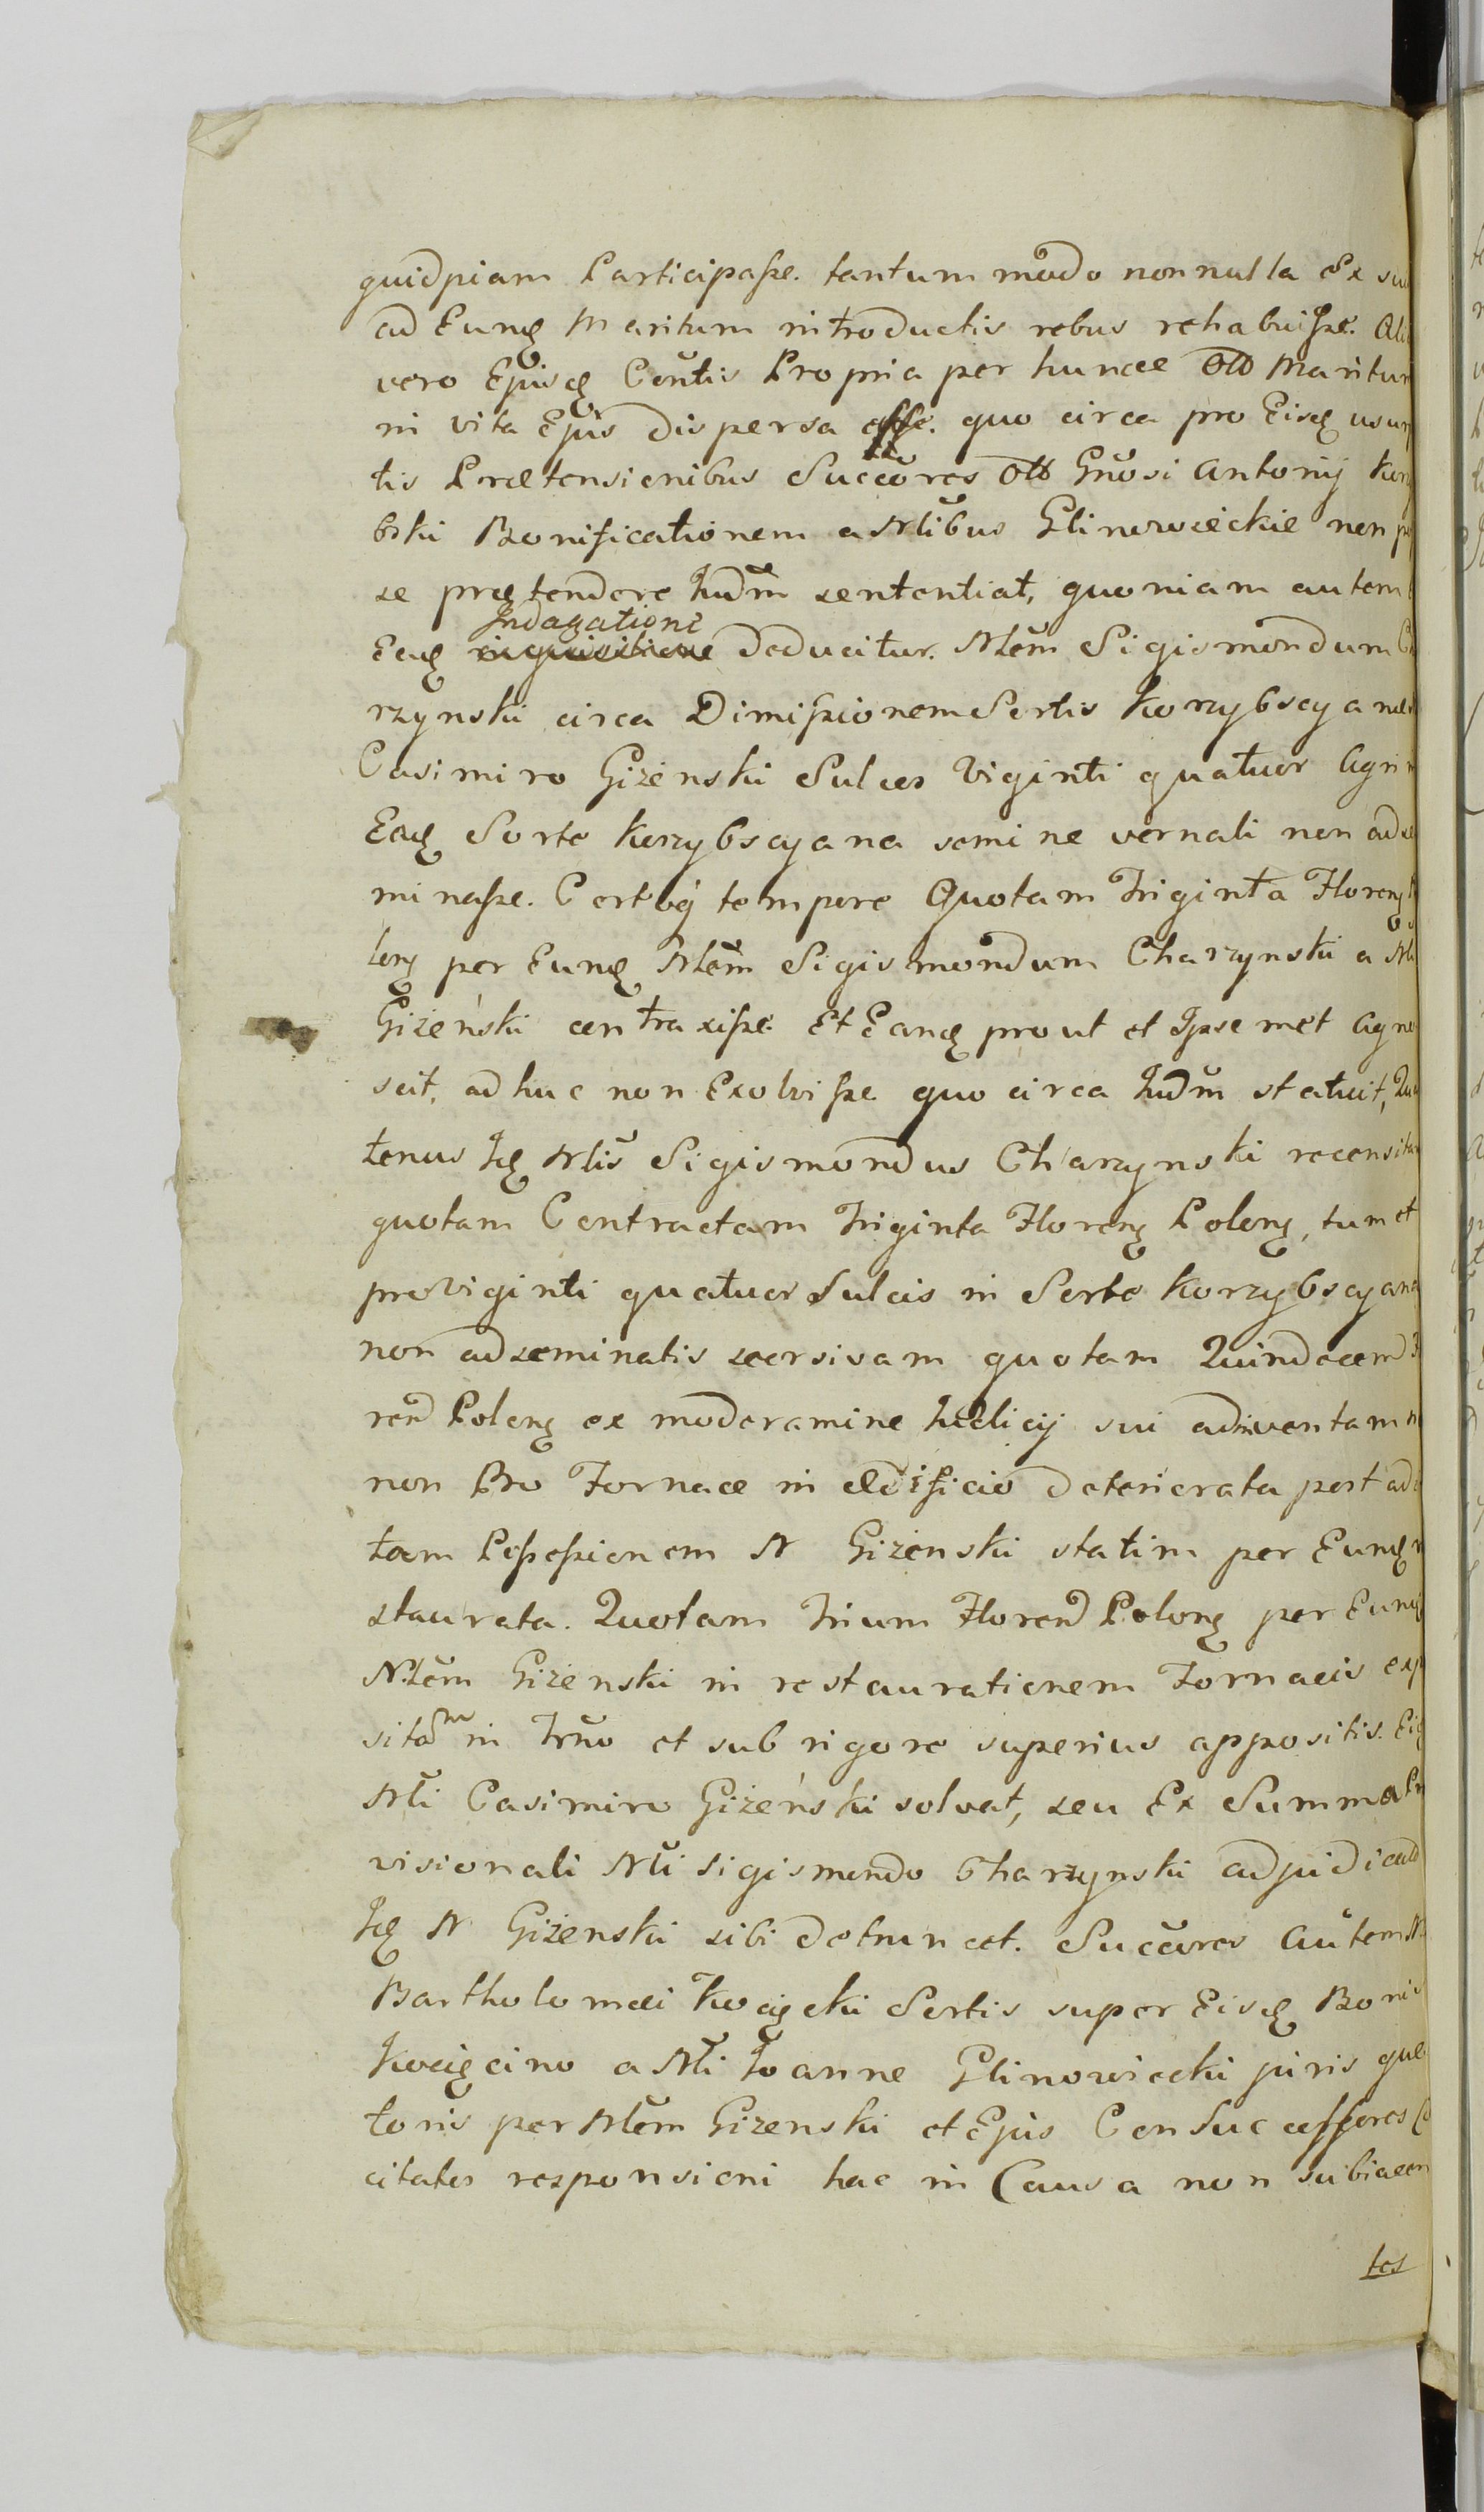 quidpiam Participasse. tantum modo non nulla Ex
ad Eunđ Maritum introductis rebus rehabuisse.
vero Ejusđ Contis Propria per huncce Olb Maritum
in vita Ejus dispersa esse. quo circa pro Eisđ
tis Prætensionibus Succores Olb Gnosi Antonij
bski Bonificationem a Nlibus Glinowieckie non
se prætendere Iudm sententiat, quoniam autem
Eađ Indagatione deducitur. Nlem Sigismondum
rzynski circa Dimissionem Sortis Korzybscyanæ
Casimiro Giżenski Sulcos Viginti quatuor Agri
Eađ Sorte Korzybscyana semine vernali non
minasse. Certoq́ tempore Quotam Triginta Floren
lon per Eunđ Nlem Sigismondum Charzynski a
Giżeński contraxisse Et Eanđ prout et Ipsemet agno
scit, ad huc non Exolvisse quo circa Iudm statuit,
tenus Iđ Nlis Sigismondus Charzynski
quotam Contractam Triginta Floren Polon, tum et
pro viginti quatuor Sulcis in Sorte Korzybscyana
non adseminatis seorsivam quotam Quindecem
ren Polon ex moderamine Iudicij sui adinventam
non Pro Fornace in ædificio deteriorata post
tam Possessionem N Giżenski statim per Eunđ
staurata. Quotam Trium Floren Polon per Eunđ
Nlem Giżenski in restaurationem Fornacis
sitam in Trno et sub rigore superius appositis.
Nli Casimiro Giżeński solvat, seu Ex Summa
visionali Nli Sigismondo Charzynski
Iđ N Giżenski sibi detruncet. Succores autem
Bartholomæi Kocięcki Sortis super Eisđ Bonis
Kocięcino a Nli Joanne Glinowiecki juris
toris per Nlem Giżenski et Ejus Consuccessores
citatos responsioni hac in Causa non
tes